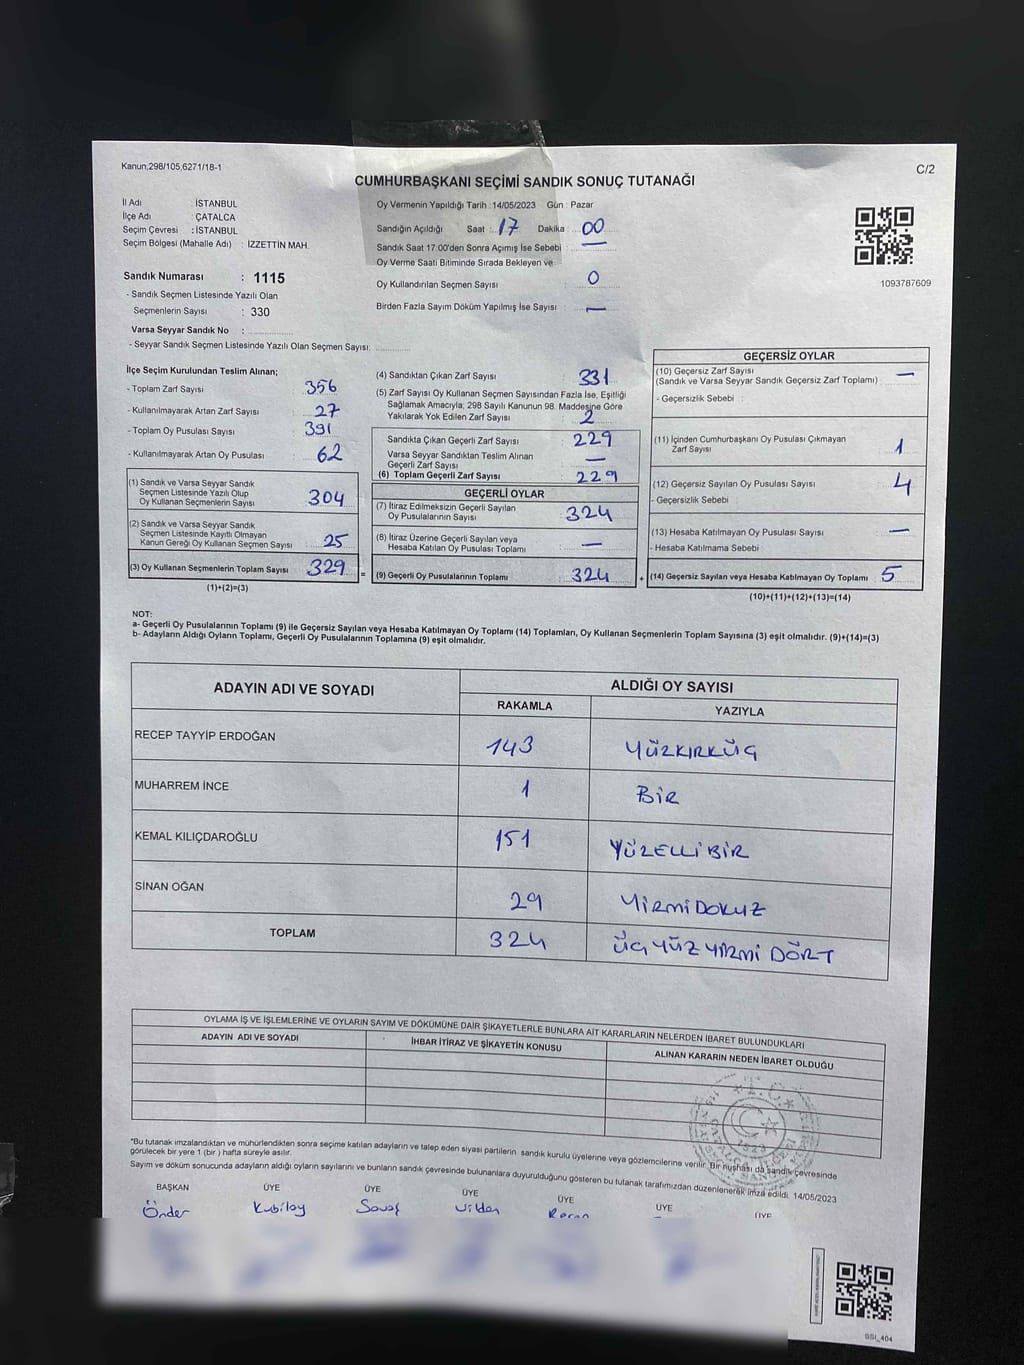 Kanun,298/105,6271/18-1
C/2
CUMHURBAŞKANI SEÇİMİ SANDIK SONUÇ TUTANAĞI
İl Adı : İSTANBUL
İlçe Adı : ÇATALCA
Seçim Çevresi : İSTANBUL
Seçim Bölgesi (Mahalle Adı) : İZZETTİN MAH.
Sandık Numarası : 1115
- Sandık Seçmen Listesinde Yazılı Olan
Seçmenlerin Sayısı : 330
Varsa Seyyar Sandık No :
- Seyyar Sandık Seçmen Listesinde Yazılı Olan Seçmen Sayısı:
Oy Vermenin Yapıldığı Tarih : 14/05/2023 Gün : Pazar
Sandığın Açıldığı Saat : 17 Dakika : 00
Sandık Saat 17:00'den Sonra Açımış İse Sebebi : —
Oy Verme Saati Bitiminde Sırada Bekleyen ve
Oy Kullandırılan Seçmen Sayısı : 0
Birden Fazla Sayım Döküm Yapılmış İse Sayısı : —
1093787609
İlçe Seçim Kurulundan Teslim Alınan;
- Toplam Zarf Sayısı : 356
- Kullanılmayarak Artan Zarf Sayısı : 27
- Toplam Oy Pusulası Sayısı : 391
- Kullanılmayarak Artan Oy Pusulası : 62
(1) Sandık ve Varsa Seyyar Sandık
Seçmen Listesinde Yazılı Olup
Oy Kullanan Seçmenlerin Sayısı : 304
(2) Sandık ve Varsa Seyyar Sandık
Seçmen Listesinde Kayıtlı Olmayan
Kanun Gereği Oy Kullanan Seçmen Sayısı : 25
(3) Oy Kullanan Seçmenlerin Toplam Sayısı : 329 =
(1)+(2)=(3)
(4) Sandıktan Çıkan Zarf Sayısı : 331
(5) Zarf Sayısı Oy Kullanan Seçmen Sayısından Fazla İse, Eşitliği
Sağlamak Amacıyla; 298 Sayılı Kanunun 98. Maddesine Göre
Yakılarak Yok Edilen Zarf Sayısı : 2
Sandıkta Çıkan Geçerli Zarf Sayısı : 229
Varsa Seyyar Sandıktan Teslim Alınan
Geçerli Zarf Sayısı : —
(6) Toplam Geçerli Zarf Sayısı : 229
GEÇERLİ OYLAR
(7) İtiraz Edilmeksizin Geçerli Sayılan
Oy Pusulalarının Sayısı : 324
(8) İtiraz Üzerine Geçerli Sayılan veya
Hesaba Katılan Oy Pusulası Toplamı : —
(9) Geçerli Oy Pusulalarının Toplamı : 324 +
GEÇERSİZ OYLAR
(10) Geçersiz Zarf Sayısı : —
(Sandık ve Varsa Seyyar Sandık Geçersiz Zarf Toplamı)
- Geçersizlik Sebebi :
(11) İçinden Cumhurbaşkanı Oy Pusulası Çıkmayan
Zarf Sayısı : 1
(12) Geçersiz Sayılan Oy Pusulası Sayısı : 4
- Geçersizlik Sebebi :
(13) Hesaba Katılmayan Oy Pusulası Sayısı : —
- Hesaba Katılmama Sebebi :
(14) Geçersiz Sayılan veya Hesaba Katılmayan Oy Toplamı : 5
(10)+(11)+(12)+(13)=(14)
NOT:
a- Geçerli Oy Pusulalarının Toplamı (9) ile Geçersiz Sayılan veya Hesaba Katılmayan Oy Toplamı (14) Toplamları, Oy Kullanan Seçmenlerin Toplam Sayısına (3) eşit olmalıdır. (9)+(14)=(3)
b- Adayların Aldığı Oyların Toplamı, Geçerli Oy Pusulalarının Toplamına (9) eşit olmalıdır.
ADAYIN ADI VE SOYADI
ALDIĞI OY SAYISI
RAKAMLA YAZIYLA
RECEP TAYYİP ERDOĞAN 143 YÜZKIRKÜÇ
MUHARREM İNCE 1 BİR
KEMAL KILIÇDAROĞLU 151 YÜZELLİBİR
SİNAN OĞAN 29 YİRMİDOKUZ
TOPLAM 324 ÜÇYÜZYİRMİ DÖRT
OYLAMA İŞ VE İŞLEMLERİNE VE OYLARIN SAYIM VE DÖKÜMÜNE DAİR ŞİKAYETLERLE BUNLARA AİT KARARLARIN NELERDEN İBARET BULUNDUKLARI
ADAYIN ADI VE SOYADI İHBAR İTİRAZ VE ŞİKAYETİN KONUSU ALINAN KARARIN NEDEN İBARET OLDUĞU
*Bu tutanak imzalandıktan ve mühürlendikten sonra seçime katılan adayların ve talep eden siyasi partilerin sandık kurulu üyelerine veya gözlemcilerine verilir. Bir nüshası da sandık çevresinde
görülecek bir yere 1 (bir ) hafta süreyle asılır.
Sayım ve döküm sonucunda adayların aldığı oyların sayılarını ve bunların sandık çevresinde bulunanlara duyurulduğunu gösteren bu tutanak tarafımızdan düzenlenerek imza edildi. 14/05/2023
BAŞKAN ÜYE ÜYE ÜYE ÜYE ÜYE ÜYE
Önder Kubilay Savaş Vildan
SSI_404